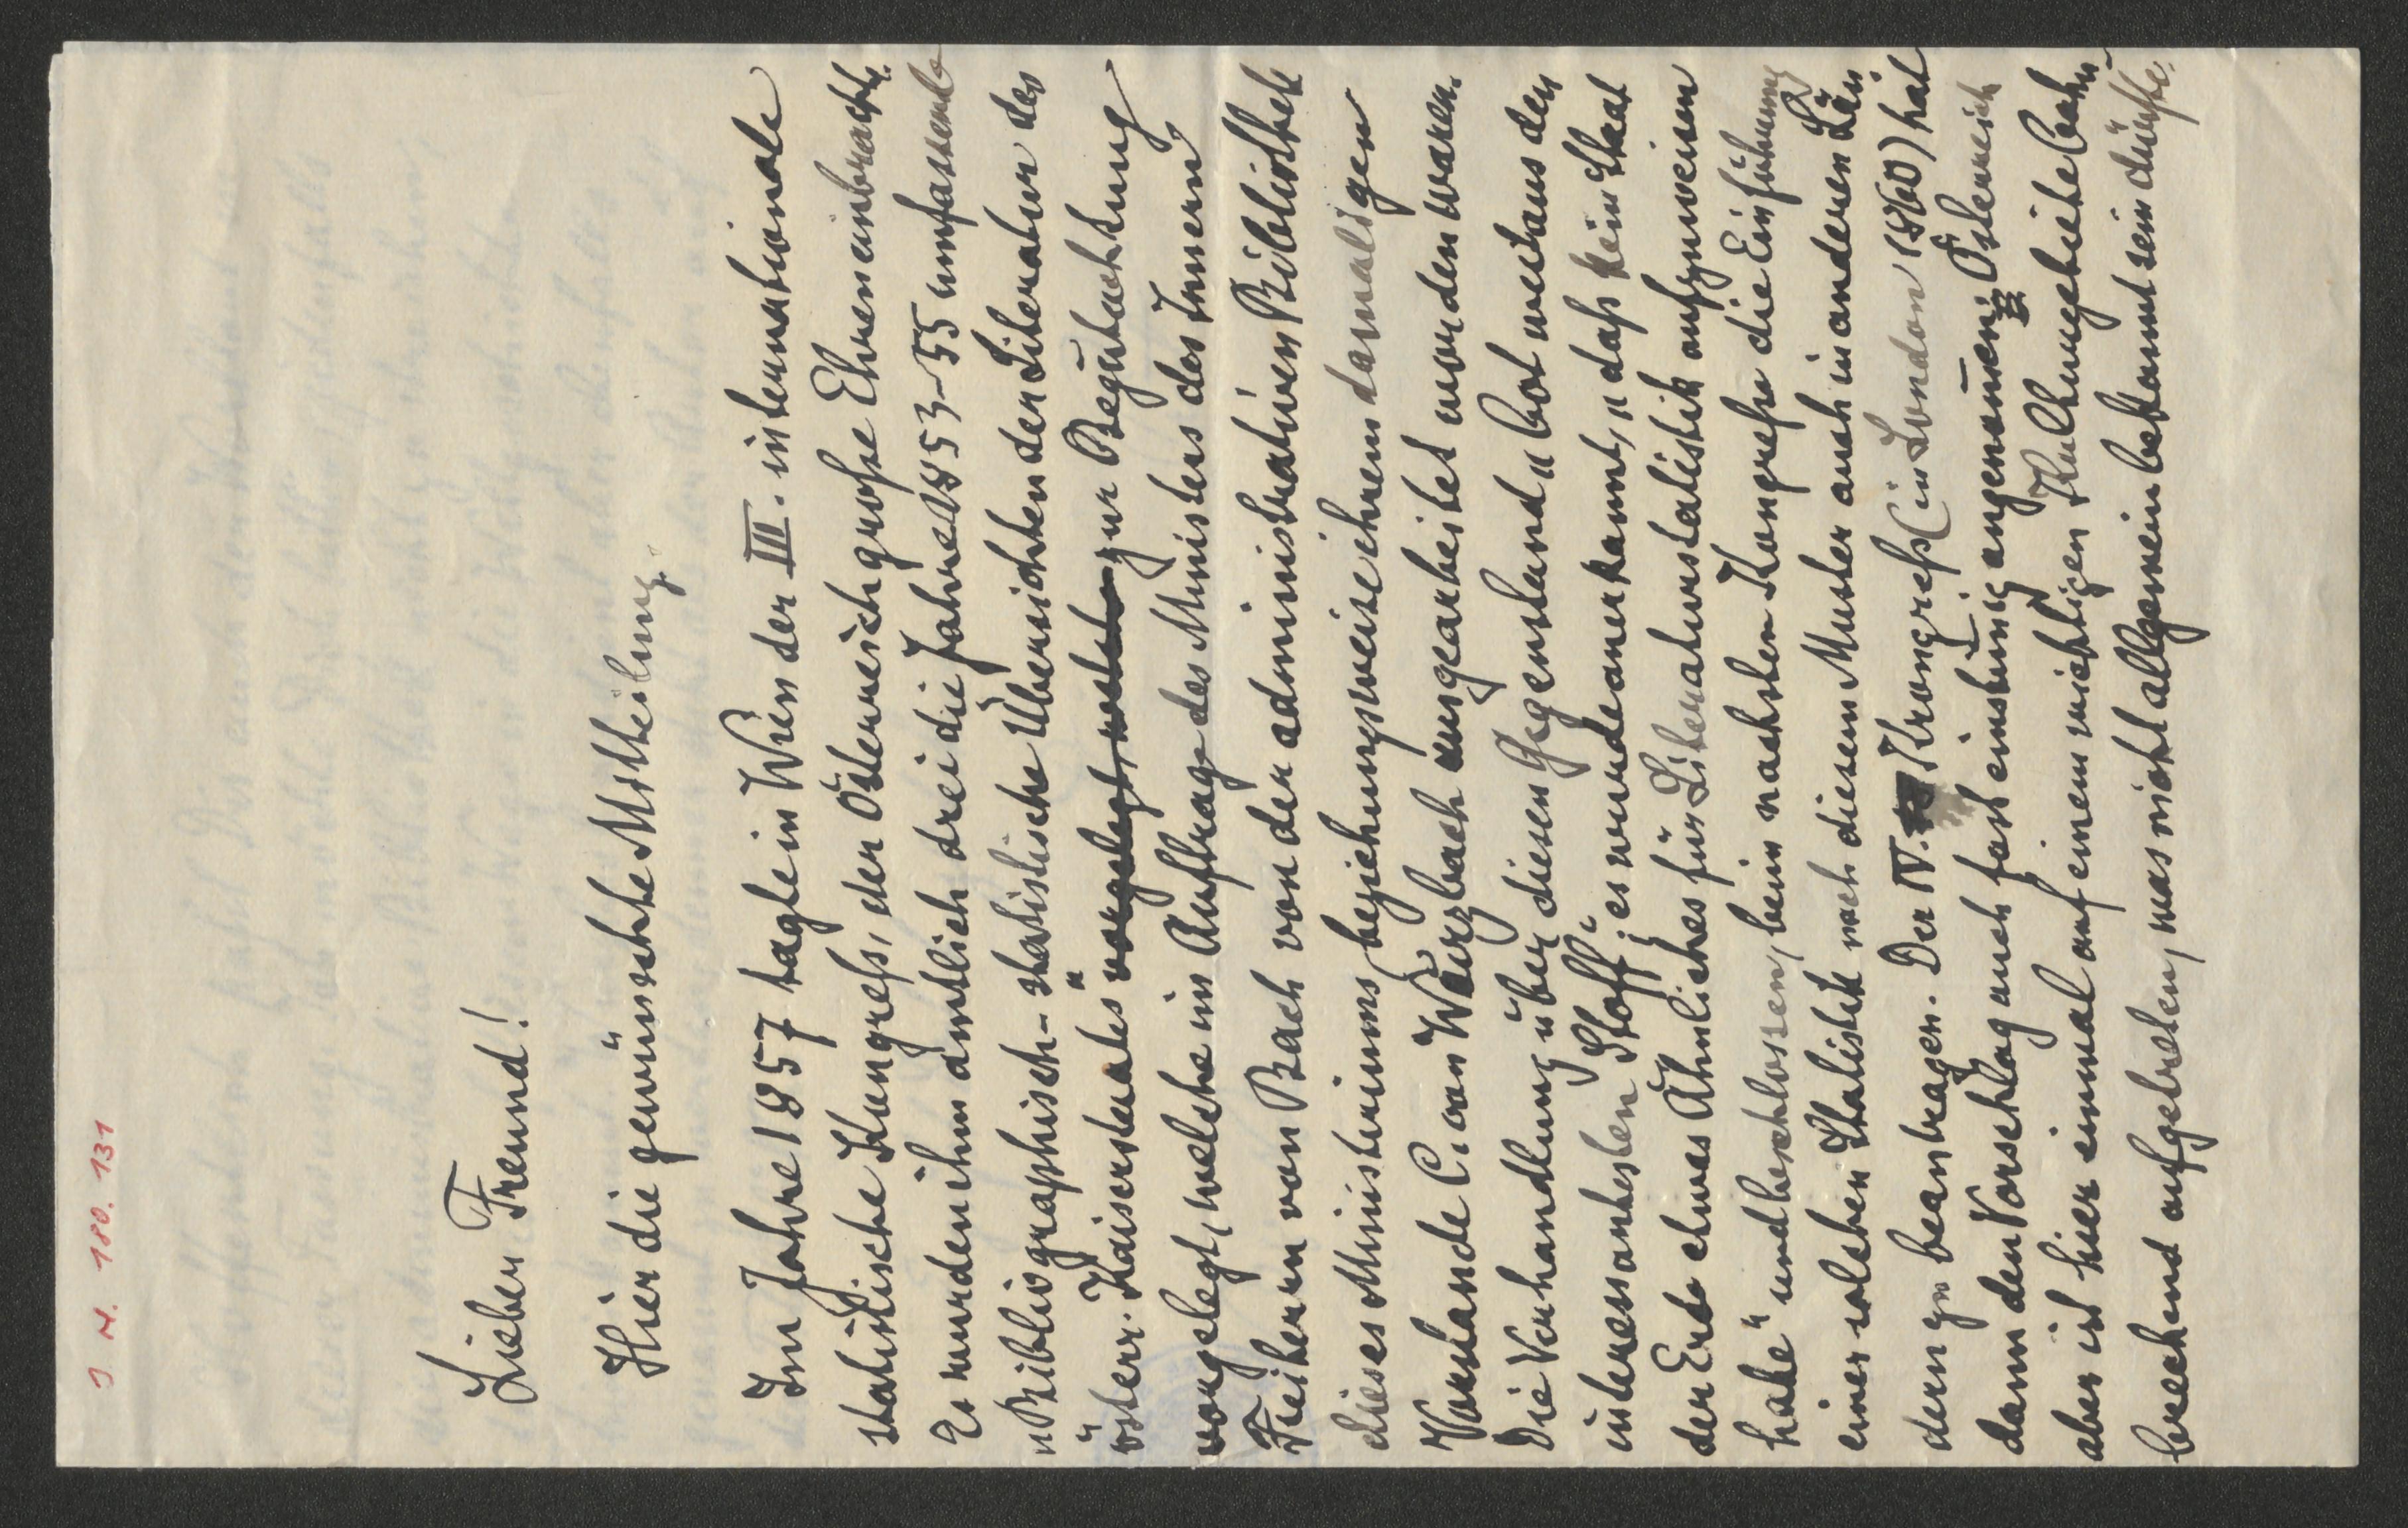 J. N. 180. 131
Lieber Freund!
Hier die gewünschte Mittheilung.
Im Jahre 1857 tagte in Wien der III. internationale
statistische Kongreß, der Österreich große Ehren einbrachte.
Es wurden ihm amtlich drei die Jahre 1853–55 umfassende
„Bibliographisch-statistische Übersichten der Literatur des
österr. Kaiserstaates" vorgelegt, welche zur Begutachtung
vorgelegt, welche im Auftrage des Ministers des Innern
Freiherrn von Bach von der administrativen Bibliothek
dieses Ministeriums beziehungsweise ihrem damaligen
Vorstande C. von Wurzbach ausgearbeitet worden waren.
Die Verhandlung über diesen Gegenstand „bot weitaus den
interessantesten Stoff"; es wurde anerkannt, „daß kein Staat
der Erde etwas Ähnliches für Literaturstatistik aufzuweisen
habe" und beschlossen, beim nächsten Kongreße die Einführung
einer solchen Statistik nach diesem Muster auch in anderen Län-
dern zu beantragen. Der IV. Kongreß (in London 1860) hat
dann den Vorschlag auch fast einstimmig angenommen. Österreich
aber ist hier einmal auf einem wichtigen Kulturgebiete bahn-
brechend aufgetreten, was nicht allgemein bekannt sein dürfte.